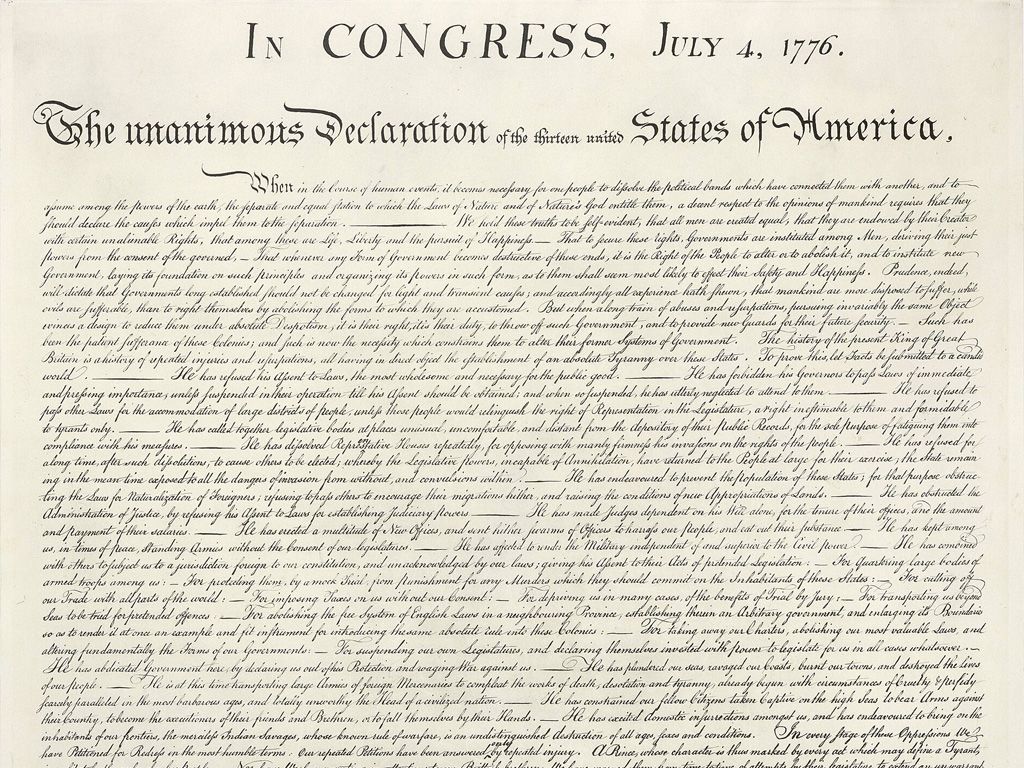 IN CONGRESS, JULY 4, 1776.
The unanimous Declaration of the thirteen united States of America.
When in the Course of human events, it becomes necessary for one people to dissolve the political bands which have connected them with another, and to
assume among the powers of the earth, the separate and equal station to which the Laws of Nature and of Nature's God entitle them, a decent respect to the opinions of mankind requires that they
should declare the causes which impel them to the separation. ——— We hold these truths to be self-evident, that all men are created equal, that they are endowed by their Creator
with certain unalienable Rights, that among these are Life, Liberty and the pursuit of Happiness.— That to secure these rights, Governments are instituted among Men, deriving their just
powers from the consent of the governed, — That whenever any Form of Government becomes destructive of these ends, it is the Right of the People to alter or to abolish it, and to institute new
Government, laying its foundation on such principles and organizing its powers in such form, as to them shall seem most likely to effect their Safety and Happiness. Prudence, indeed,
will dictate that Governments long established should not be changed for light and transient causes; and accordingly all experience hath shewn, that mankind are more disposed to suffer, while
evils are sufferable, than to right themselves by abolishing the forms to which they are accustomed. But when a long train of abuses and usurpations, pursuing invariably the same Object
evinces a design to reduce them under absolute Despotism, it is their right, it is their duty, to throw off such Government, and to provide new Guards for their future security. — Such has
been the patient sufferance of these Colonies; and such is now the necessity which constrains them to alter their former Systems of Government. The history of the present King of Great
Britain is a history of repeated injuries and usurpations, all having in direct object the establishment of an absolute Tyranny over these States. To prove this, let Facts be submitted to a candid
world. ——— He has refused his Assent to Laws, the most wholesome and necessary for the public good. ——— He has forbidden his Governors to pass Laws of immediate
and pressing importance, unless suspended in their operation till his Assent should be obtained; and when so suspended, he has utterly neglected to attend to them. ——— He has refused to
pass other Laws for the accommodation of large districts of people, unless those people would relinquish the right of Representation in the Legislature, a right inestimable to them and formidable
to tyrants only. ——— He has called together legislative bodies at places unusual, uncomfortable, and distant from the depository of their Public Records, for the sole purpose of fatiguing them into
compliance with his measures. ——— He has dissolved Representative Houses repeatedly, for opposing with manly firmness his invasions on the rights of the people. ——— He has refused for
a long time, after such dissolutions, to cause others to be elected; whereby the Legislative powers, incapable of Annihilation, have returned to the People at large for their exercise; the State remain
ing in the mean time exposed to all the dangers of invasion from without, and convulsions within. ——— He has endeavoured to prevent the population of these States; for that purpose obstruc
ting the Laws for Naturalization of Foreigners; refusing to pass others to encourage their migrations hither, and raising the conditions of new Appropriations of Lands. ——— He has obstructed the
Administration of Justice, by refusing his Assent to Laws for establishing Judiciary powers. ——— He has made Judges dependent on his Will alone, for the tenure of their offices, and the amount
and payment of their salaries. ——— He has erected a multitude of New Offices, and sent hither swarms of Officers to harrass our people, and eat out their substance. ——— He has kept among
us, in times of peace, Standing Armies without the Consent of our legislatures. ——— He has affected to render the Military independent of and superior to the Civil power. ——— He has combined
with others to subject us to a jurisdiction foreign to our constitution, and unacknowledged by our laws; giving his Assent to their Acts of pretended Legislation: — For Quartering large bodies of
armed troops among us: — For protecting them, by a mock Trial, from punishment for any Murders which they should commit on the Inhabitants of these States: — For cutting off
our Trade with all parts of the world: — For imposing Taxes on us without our Consent: — For depriving us in many cases, of the benefits of Trial by jury: — For transporting us beyond
Seas to be tried for pretended offences: — For abolishing the free System of English Laws in a neighbouring Province, establishing therein an Arbitrary government, and enlarging its Boundaries
so as to render it at once an example and fit instrument for introducing the same absolute rule into these Colonies: — For taking away our Charters, abolishing our most valuable Laws, and
altering fundamentally the Forms of our Governments: — For suspending our own Legislatures, and declaring themselves invested with power to legislate for us in all cases whatsoever. —
He has abdicated Government here, by declaring us out of his Protection and waging War against us. — He has plundered our seas, ravaged our Coasts, burnt our towns, and destroyed the lives
of our people. — He is at this time transporting large Armies of foreign Mercenaries to compleat the works of death, desolation and tyranny, already begun with circumstances of Cruelty & perfidy
scarcely paralleled in the most barbarous ages, and totally unworthy the Head of a civilized nation. — He has constrained our fellow Citizens taken Captive on the high Seas to bear Arms against
their Country, to become the executioners of their friends and Brethren, or to fall themselves by their Hands. — He has excited domestic insurrections amongst us, and has endeavoured to bring on the
inhabitants of our frontiers, the merciless Indian Savages, whose known rule of warfare, is an undistinguished destruction of all ages, sexes and conditions. In every stage of these Oppressions We
have Petitioned for Redress in the most humble terms: Our repeated Petitions have been answered only by repeated injury. A Prince, whose character is thus marked by every act which may define a Tyrant,